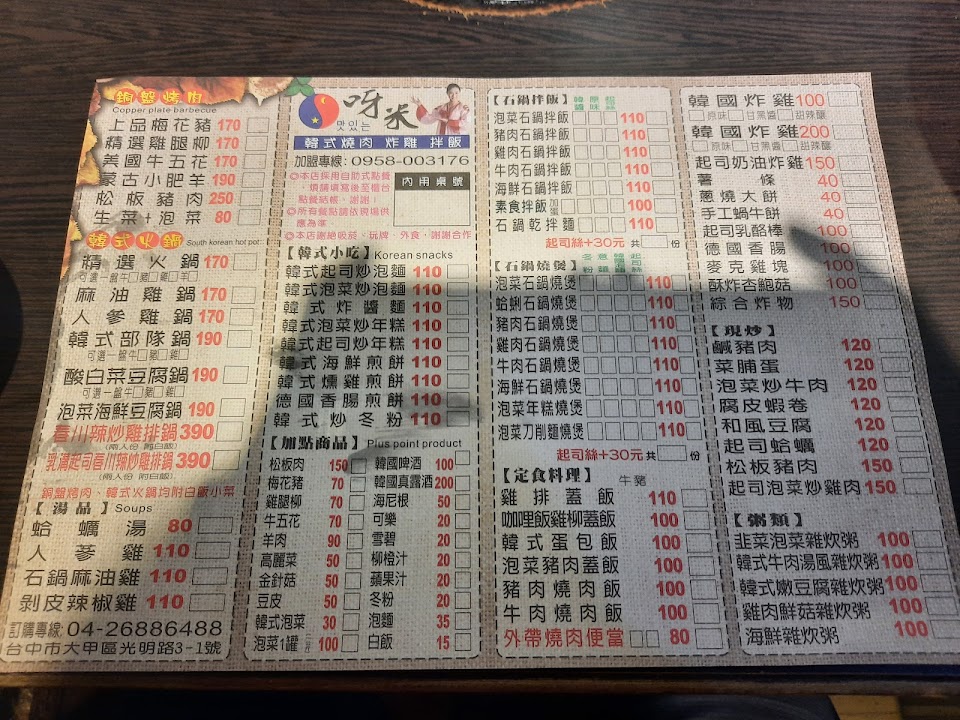 銅盤烤肉
Copper plate barbecue
上品梅花豬 170
精選雞腿柳 170
美國牛五花 170
蒙古小肥羊 190
松板豬肉 250
生菜+泡菜 80
韓式火鍋 South korean hot pot
精選火鍋 170
可選一盤牛□豬□雞□
麻油雞鍋 170
人參雞鍋 170
韓式部隊鍋 190
可選一盤牛□豬□雞□
酸白菜豆腐鍋 190
可選一盤牛□豬□雞□
泡菜海鮮豆腐鍋 190
春川辣炒雞排鍋 390
(兩人份 附白飯)
乳滿起司春川辣炒雞排鍋 390
(兩人份 附白飯)
銅盤烤肉、韓式火鍋均附白飯小菜
【湯品】Soups
蛤蠣湯 80
人蔘雞 110
石鍋麻油雞 110
剝皮辣椒雞 110
訂購專線:04-26886488
台中市大甲區光明路3-1號
呀米
맛있는
韓式燒肉 炸雞 拌飯
加盟專線:0958-003176
◎本店採用自助式點餐
，煩請填寫後至櫃台
點餐結帳，謝謝！
◎所有餐點請依現場供
應為主
◎本店謝絕吸菸、玩牌、外食，謝謝合作
內用桌號
【韓式小吃】Korean snacks
韓式起司炒泡麵 110
韓式泡菜炒泡麵 110
韓式炸醬麵 110
韓式泡菜炒年糕 110
韓式起司炒年糕 110
韓式海鮮煎餅 110
韓式燻雞煎餅 110
德國香腸煎餅 110
韓式炒冬粉 110
【加點商品】Plus point product
松板肉 150
梅花豬 70
雞腿柳 70
牛五花 70
羊肉 90
高麗菜 50
金針菇 50
豆皮 50
韓式泡菜 30
泡菜1罐 100
韓國啤酒 100
韓國真露酒 200
海尼根 50
可樂 20
雪碧 20
柳橙汁 20
蘋果汁 20
冬粉 20
泡麵 35
白飯 15
【石鍋拌飯】
泡菜石鍋拌飯 110
豬肉石鍋拌飯 110
雞肉石鍋拌飯 110
牛肉石鍋拌飯 110
海鮮石鍋拌飯 110
素食拌飯 加蛋 100
石鍋乾拌麵 110
起司絲+30元 共□份
【石鍋燒煲】
泡菜石鍋燒煲 110
蛤蜊石鍋燒煲 110
豬肉石鍋燒煲 110
雞肉石鍋燒煲 110
牛肉石鍋燒煲 110
海鮮石鍋燒煲 110
泡菜年糕燒煲 110
泡菜刀削麵燒煲 110
起司絲+30元 共□份
【定食料理】 牛豬
雞排蓋飯 110
咖哩飯雞柳蓋飯 100
韓式蛋包飯 100
泡菜豬肉蓋飯 100
豬肉燒肉飯 100
牛肉燒肉飯 100
外帶燒肉便當 80
韓國炸雞 100
□原味 □甘黑醬 □甜辣釀
韓國炸雞 200
□原味 □甘黑醬 □甜辣釀
起司奶油炸雞 150
薯條 40
蔥燒大餅 40
手工蝸牛餅 40
起司乳酪棒 100
德國香腸 100
麥克雞塊 100
酥炸杏鮑菇 100
綜合炸物 150
【現炒】
鹹豬肉 120
菜脯蛋 120
泡菜炒牛肉 120
腐皮蝦卷 120
和風豆腐 120
起司蛤蠣 120
松板豬肉 150
起司泡菜炒雞肉 150
【粥類】
韭菜泡菜雜炊粥 100
韓式牛肉湯風雜炊粥 100
韓式嫩豆腐雜炊粥 100
雞肉鮮菇雜炊粥 100
海鮮雜炊粥 100